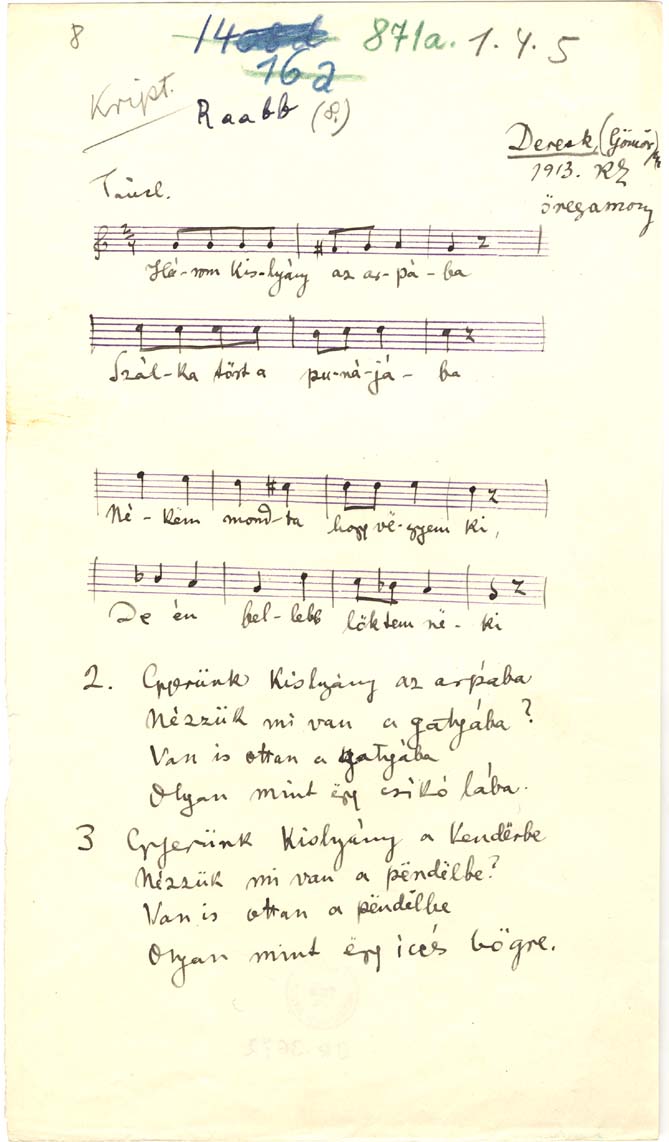 8 871a. 1. 4. 5
162
Kript.
Raabb (8?)
Deresk, (Gömör)
1913.
öregasszony
Táncl.
Há-rom kis-lyány az ar-pá-ba
Szál-ka tört a pu-ná-já-ba
Né-këm mond-ta hogy vë-gyem ki,
De én bel-lebb löktem në-ki
2. Gyerünk kislyány az arpába
Nézzük mi van a gatyába?
Van is ottan a gatyába
Olyan mint ëgy csikó lába.
3 Gyerünk kislyány a kendërbe
Nézzük mi van a pëndëlbe?
Van is ottan a pëndëlbe
Olyan mint ëgy iccés bögre.